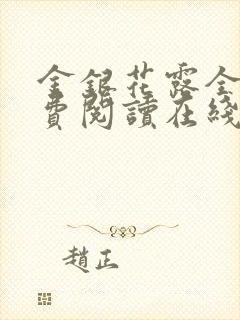 金銀花露全
費閱讀在綫
趙正